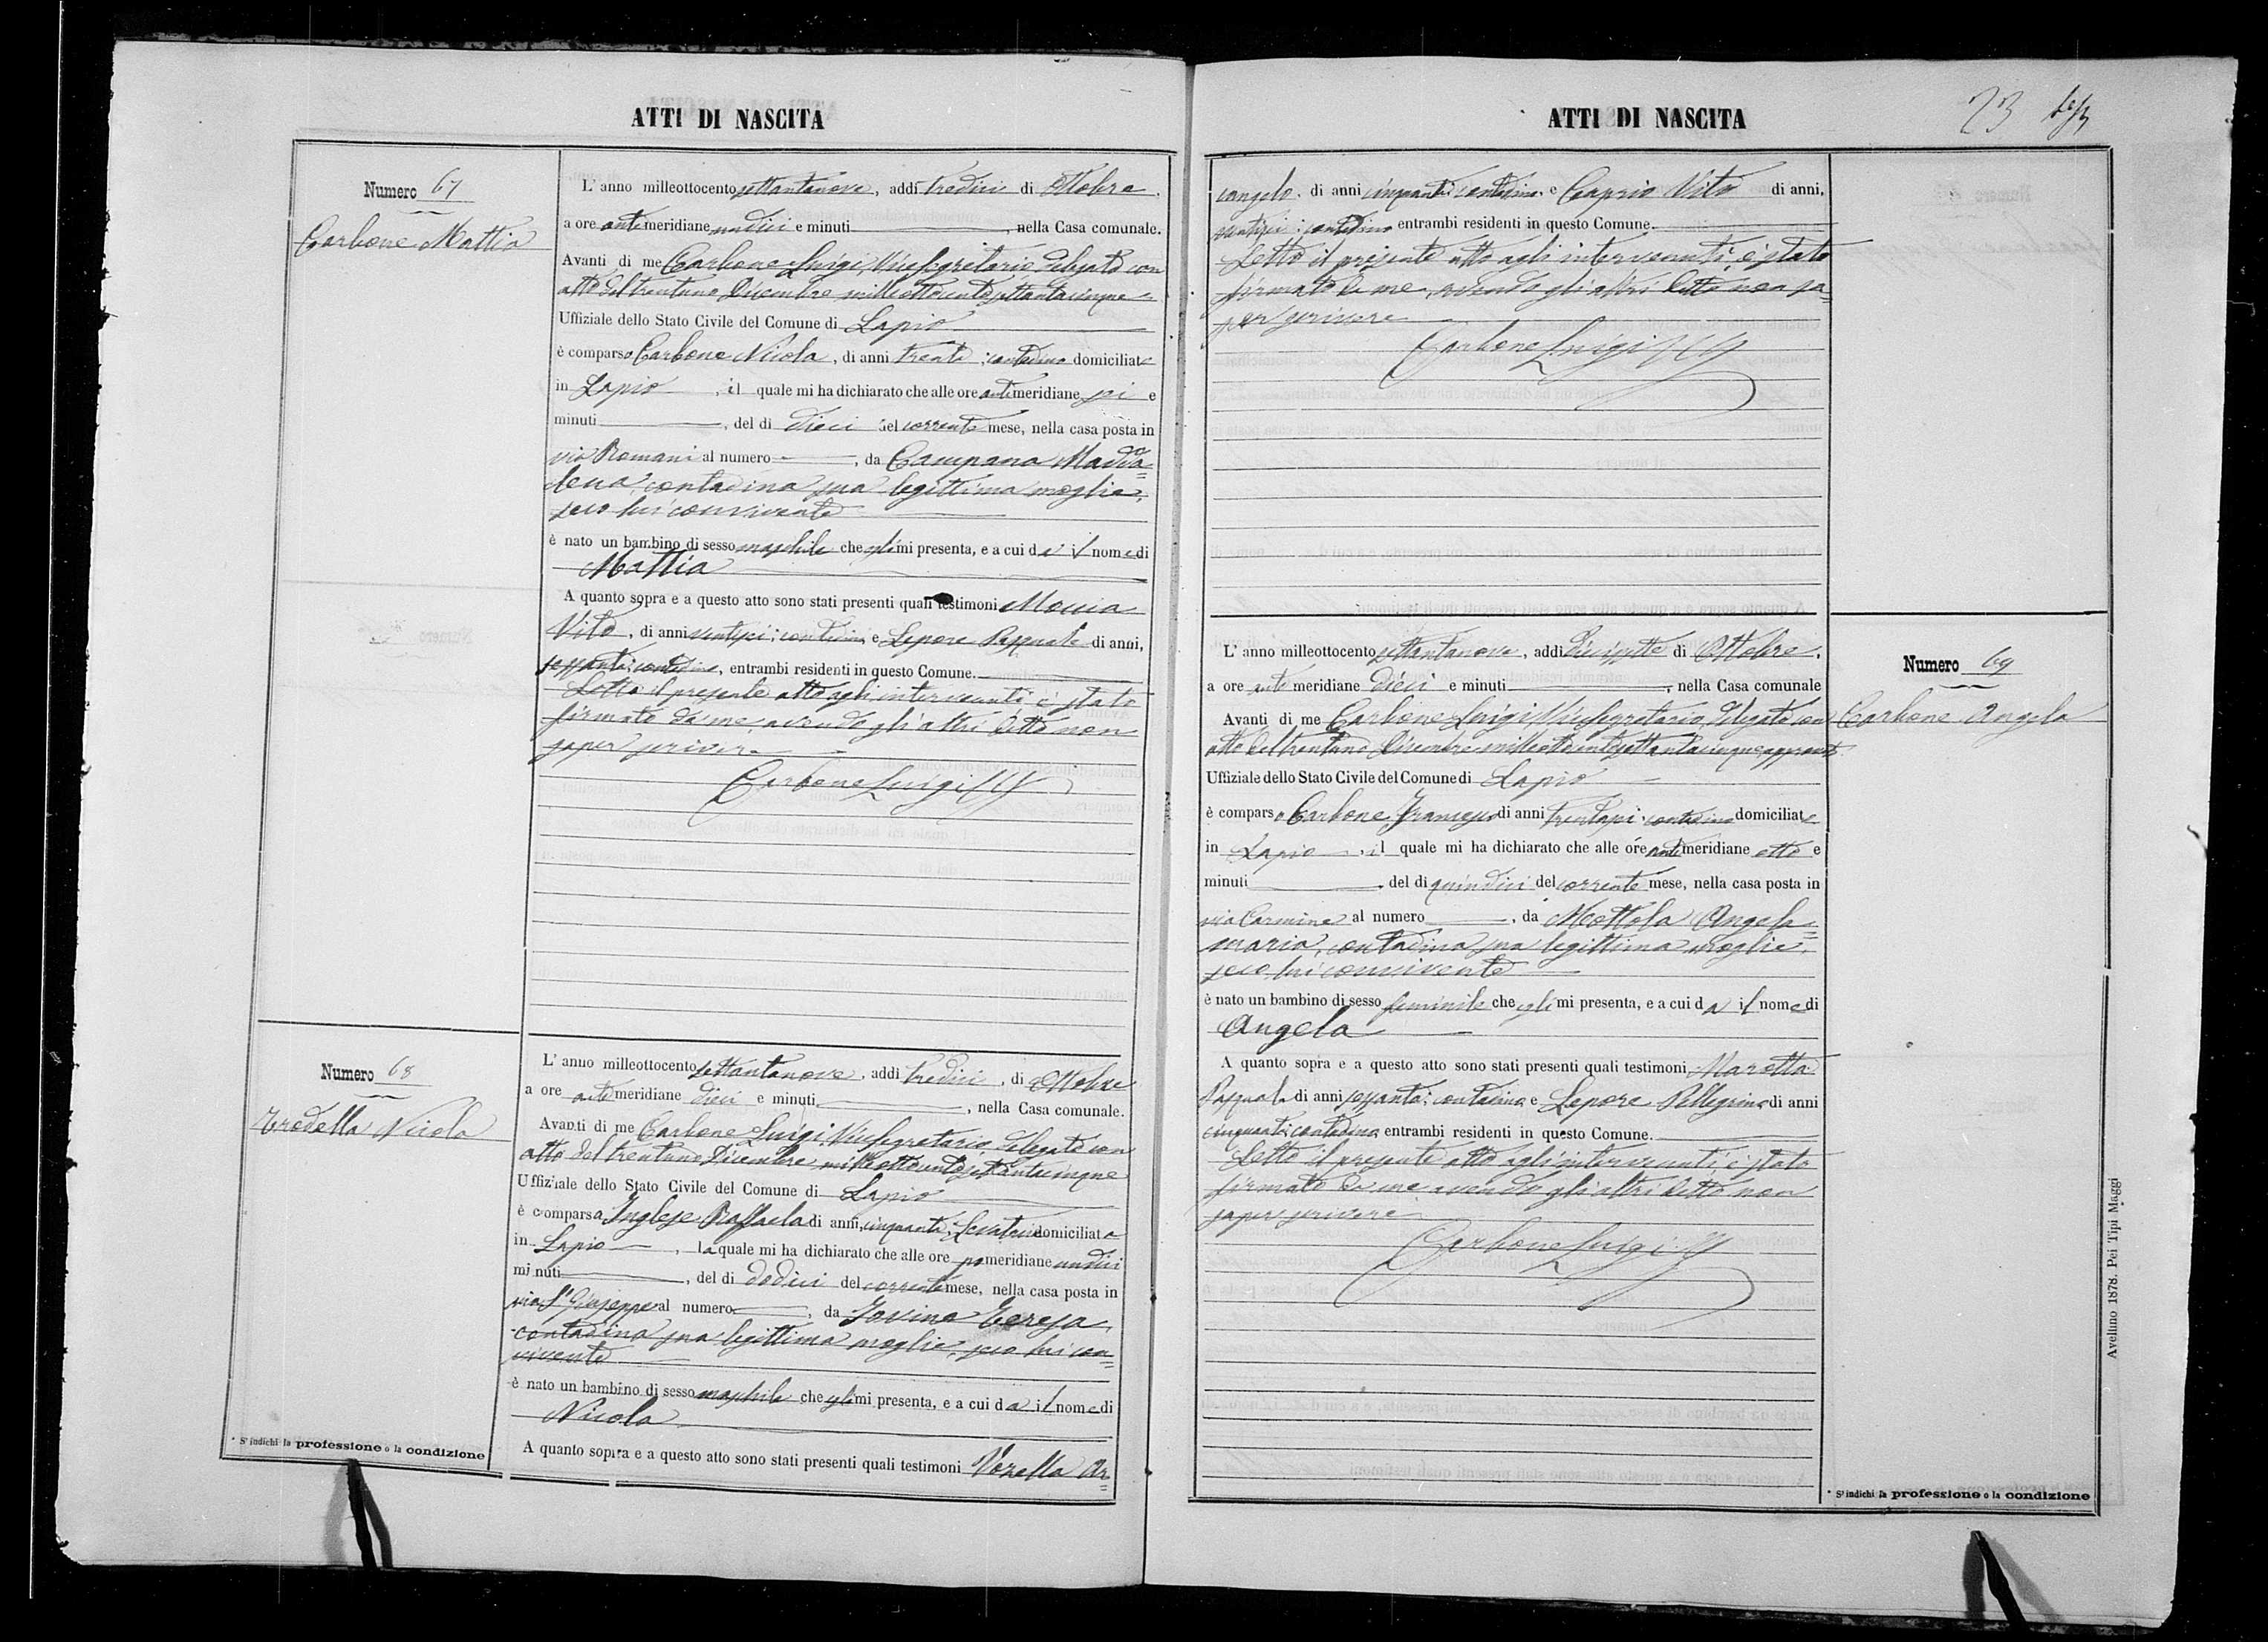 ATTI DI NASCITA
Numero 67
Carbone Mattia
L' anno milleottocento settantanove, addì tredici di Ottobre,
a ore antimeridiane undici e minuti, nella Casa comunale.
Avanti di me Carbone Luigi, Vice Segretario delegato con
atto del trentuno Dicembre milleottocentosettantacinque
Uffiziale dello Stato Civile del Comune di Lapio
è comparso Carbone Nicola, di anni trenta; contadino domiciliato
in Lapio, il quale mi ha dichiarato che alle ore antimeridiane sei e
minuti, del di dieci del corrente mese, nella casa posta in
via Romani al numero, da Campana Madda=
lena, contadina sua legittima moglie,
seco lui convivente
è nato un bambino di sesso maschile che egli mi presenta, e a cui dà il nome di
Mattia
A quanto sopra e a questo atto sono stati presenti quali testimoni
Vito, di anni ventisei; contadino, e Lepore Pasquale di anni,
sessanta; contadino, entrambi residenti in questo Comune.
Letto il presente atto agli intervenuti è stato
firmato da me, avendo gli altri detto non
saper scrivere
Carbone Luigi
Numero 68
Tredella Nicola
L' anno milleottocento settantanove, addì tredici, di Ottobre
a ore antimeridiane dieci e minuti, nella Casa comunale.
Avanti di me Carbone Luigi Vice Segretario delegato con
atto del trentuno Dicembre milleottocentosettantacinque
Uffiziale dello Stato Civile del Comune di Lapio
è comparsa Inglese Raffaela di anni, cinquanta, Levatrice domiciliata
in Lapio, la quale mi ha dichiarato che alle ore pomeridiane undici
minuti, del di dodici del corrente mese, nella casa posta in
via St Giuseppe al numero, da Iovino Teresa,
contadina sua legittima moglie, seco lui con=
vivente
è nato un bambino di sesso maschile che egli mi presenta, e a cui da il nome di
Nicola
A quanto sopra e a questo atto sono stati presenti quali testimoni Vozella Ar=
* S' indichi la professione o la condizione
ATTI DI NASCITA
23
cangelo, di anni cinquanta; contadino e Caprio Vito di anni,
ventisei; contadino entrambi residenti in questo Comune.
Letto il presente atto agli intervenuti, è stato
firmato da me, avendo gli altri detto non sa=
per scrivere
Carbone Luigi
Numero 69
Carbone Angela
L' anno milleottocento settantanove, addì diecisette di Ottobre,
a ore antimeridiane dieci e minuti, nella Casa comunale
Avanti di me Carbone Luigi Vice Segretario, delegato con
atto del trentuno Dicembre milleottocentosettantacinque approvato
Uffiziale dello Stato Civile del Comune di Lapio
è comparso Carbone Francesco di anni trentasei; contadino domiciliato
in Lapio, il quale mi ha dichiarato che alle ore antimeridiane otto e
minuti, del di quindici del corrente mese, nella casa posta in
via Carmine al numero, da Mottola Angela=
maria, contadina sua legittima moglie,
seco lui convivente
è nato un bambino di sesso feminile che egli mi presenta, e a cui da il nome di
Angela
A quanto sopra e a questo atto sono stati presenti quali testimoni Marotta
Pasquale di anni sessanta; contadino e Lepore Pellegrino di anni
cinquanta; contadino entrambi residenti in questo Comune.
Letto il presente atto agli intervenuti, è stato
firmato da me avendo gli altri detto non
saper scrivere
Carbone Luigi
* S' indichi la professione o la condizione
Avellino 1878. Pei Tipi Maggi